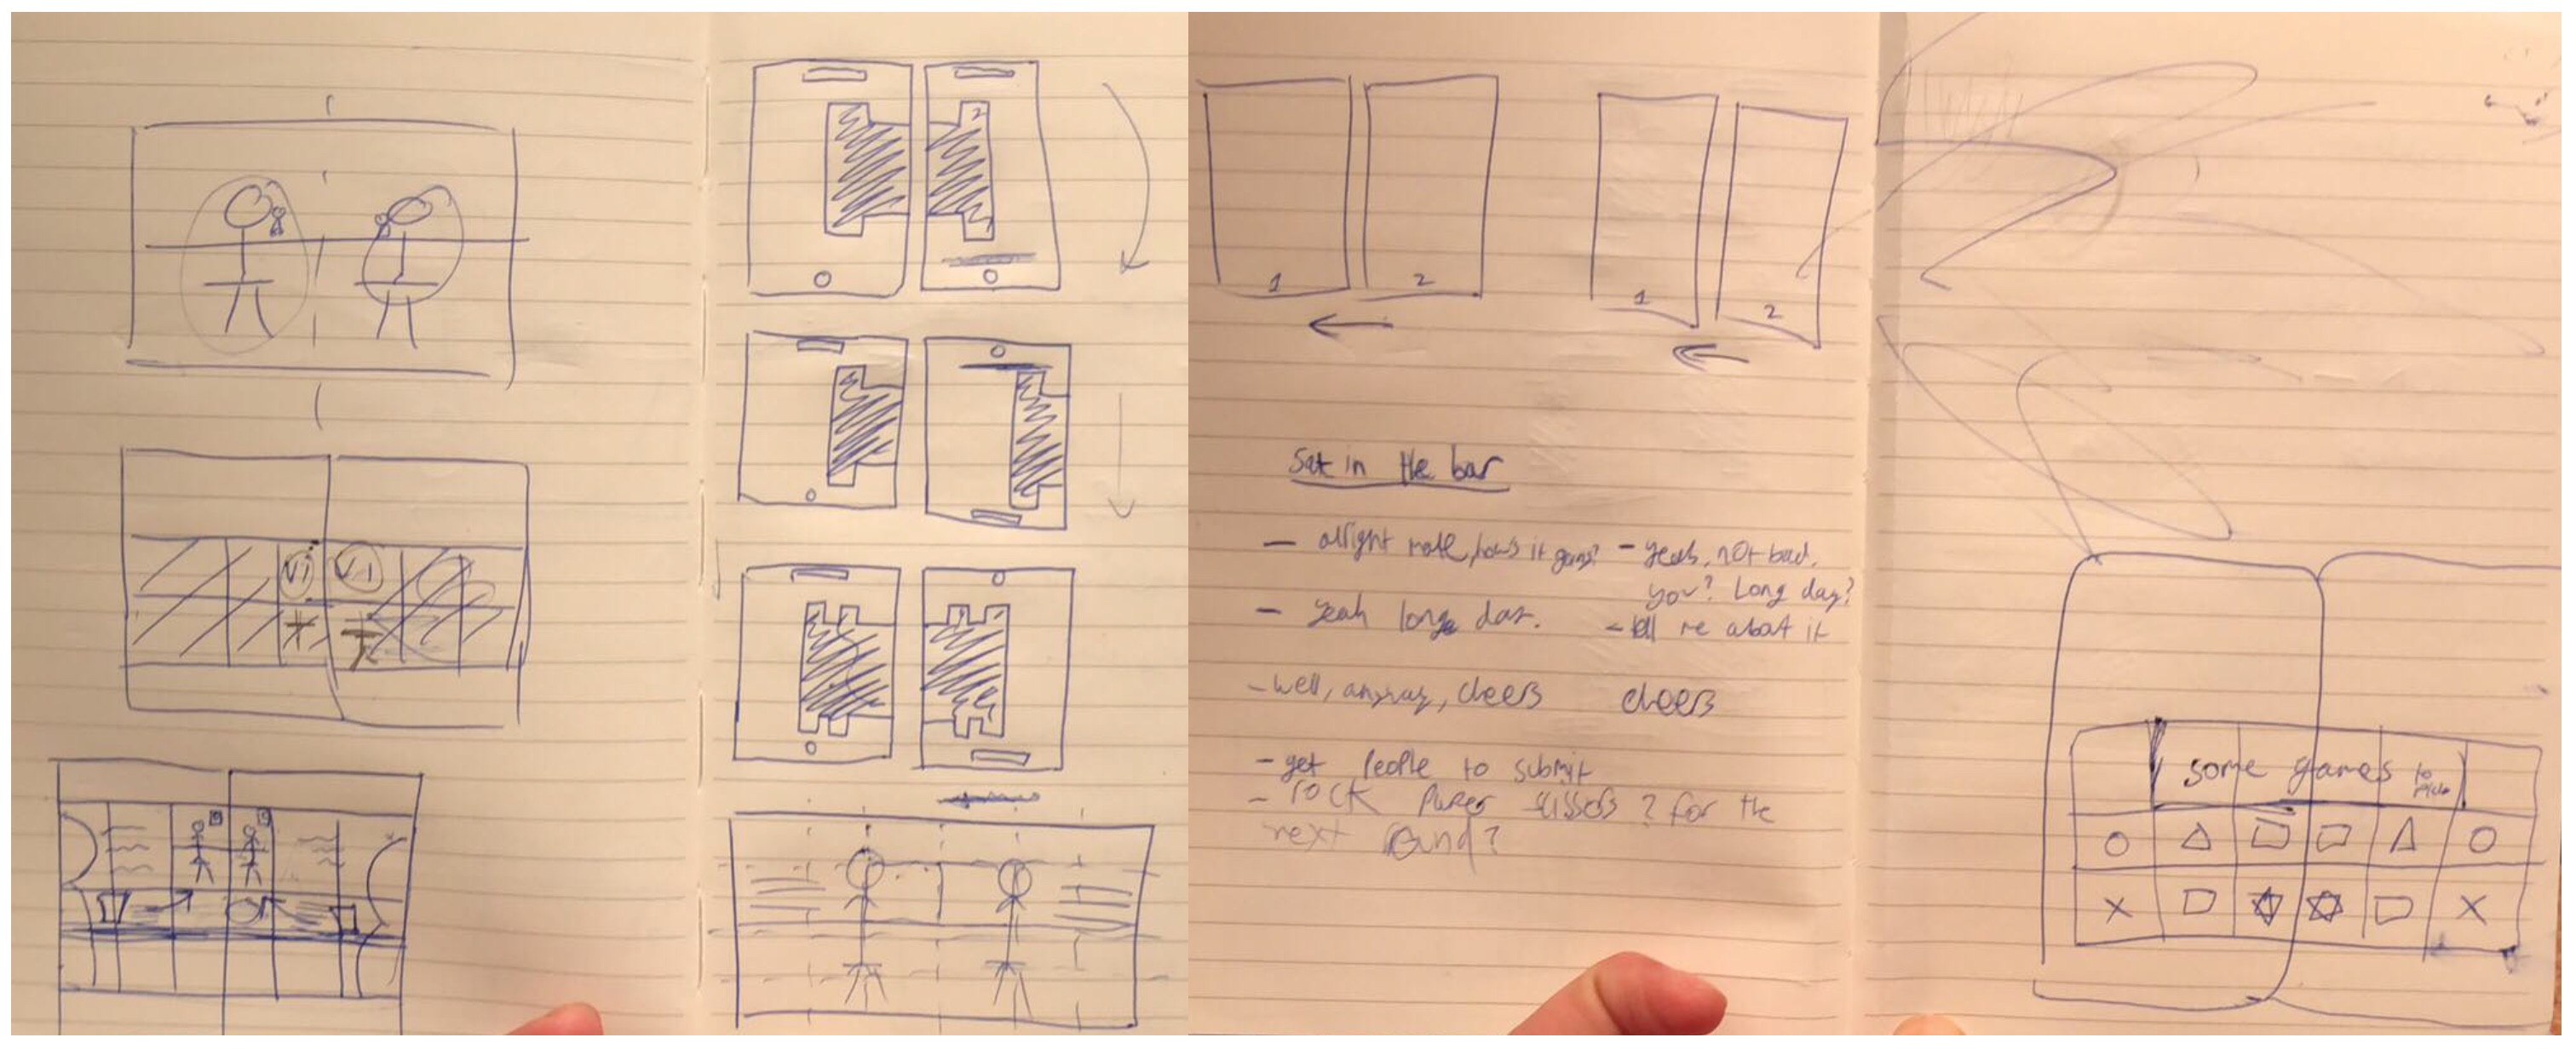 2
1
2
1
2
Sat in the bar
- alright mate, how's it going? - yeah, not bad,
you? Long day?
- yeah long day. - tell me about it
- well, anyway, cheers cheers
- get people to submit
- rock paper scissors? for the
next round?
some games to